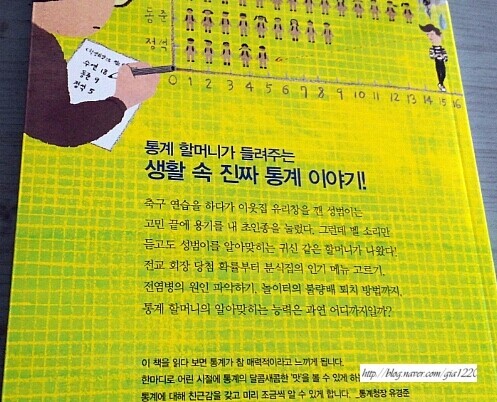 동준
정석
수연 18
동준 9
정석 5
0 1 2 3 4 5 6 7 8 9 10 11 12 13 14 15 16
통계 할머니가 들려주는
생활 속 진짜 통계 이야기!
축구 연습을 하다가 이웃집 유리창을 깬 성범이는
고민 끝에 용기를 내 초인종을 눌렀다. 그런데 벨 소리만
듣고도 성범이를 알아맞히는 귀신 같은 할머니가 나왔다!
전교 회장 당첨 확률부터 분식집의 인기 메뉴 고르기,
전염병의 원인 파악하기, 놀이터의 불량배 퇴치 방법까지,
통계 할머니의 알아맞히는 능력은 과연 어디까지일까?
이 책을 읽다 보면 통계가 참 매력적이라고 느끼게 됩니다.
한마디로 어린 시절에 통계의 달콤새콤한 '맛'을 볼 수 있게 하
통계에 대해 친근감을 갖고 미리 조금씩 알 수 있게 합니다. _통계청장 유경준
http://blog.naver.com/gia1220